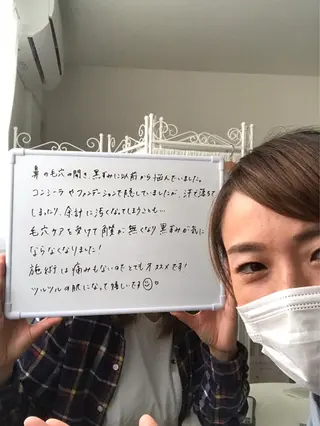 鼻の毛穴の開き 黒ずみに以前から悩んでいました。
コンシーラやファンデーションで隠していましたが、汗で落ちて
しまったり、余計に汚くなってしまうことも…
毛穴ケアを受けて角質が無くなり黒ずみが気に
ならなくなりました!
施術は痛みもないのでとてもオススメです!
ツルツルの肌になって嬉しいです☺♡